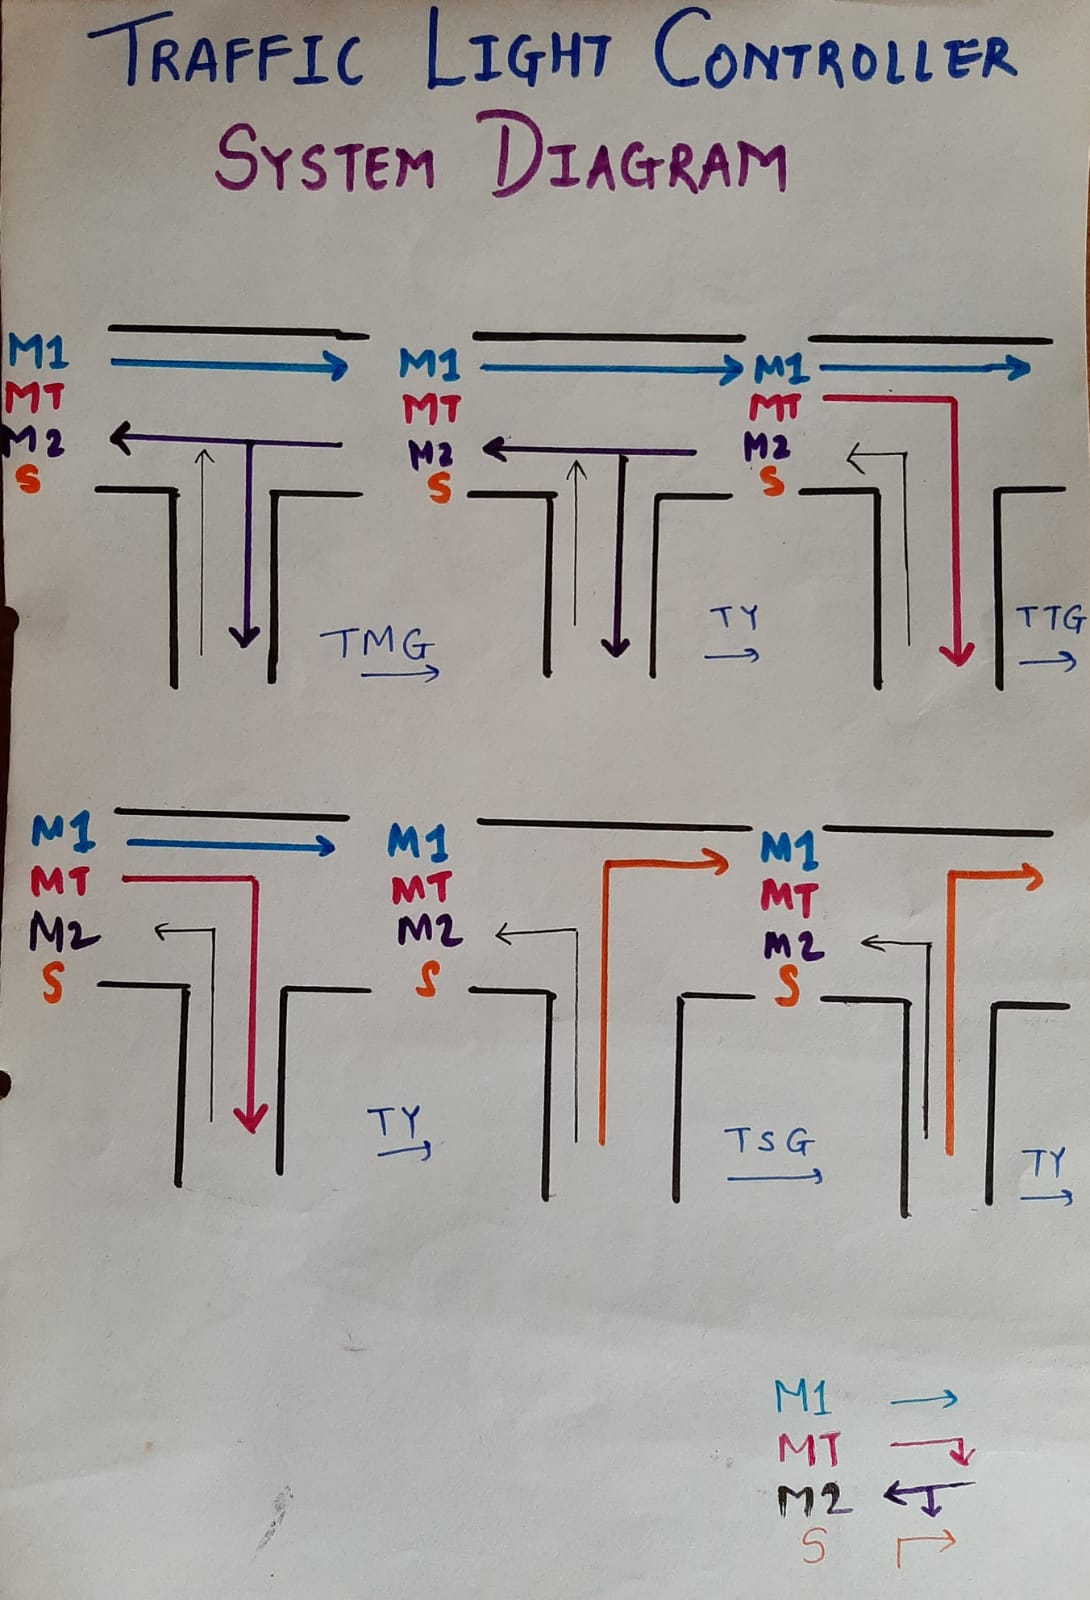 TRAFFIC LIGHT CONTROLLER
SYSTEM DIAGRAM
M1
MT
M2
S
TMG
M1
MT
M2
S
TY
M1
MT
M2
S
TTG
M1
MT
M2
S
TY
M1
MT
M2
S
TSG
M1
MT
M2
S
TY
M1
MT
M2
S